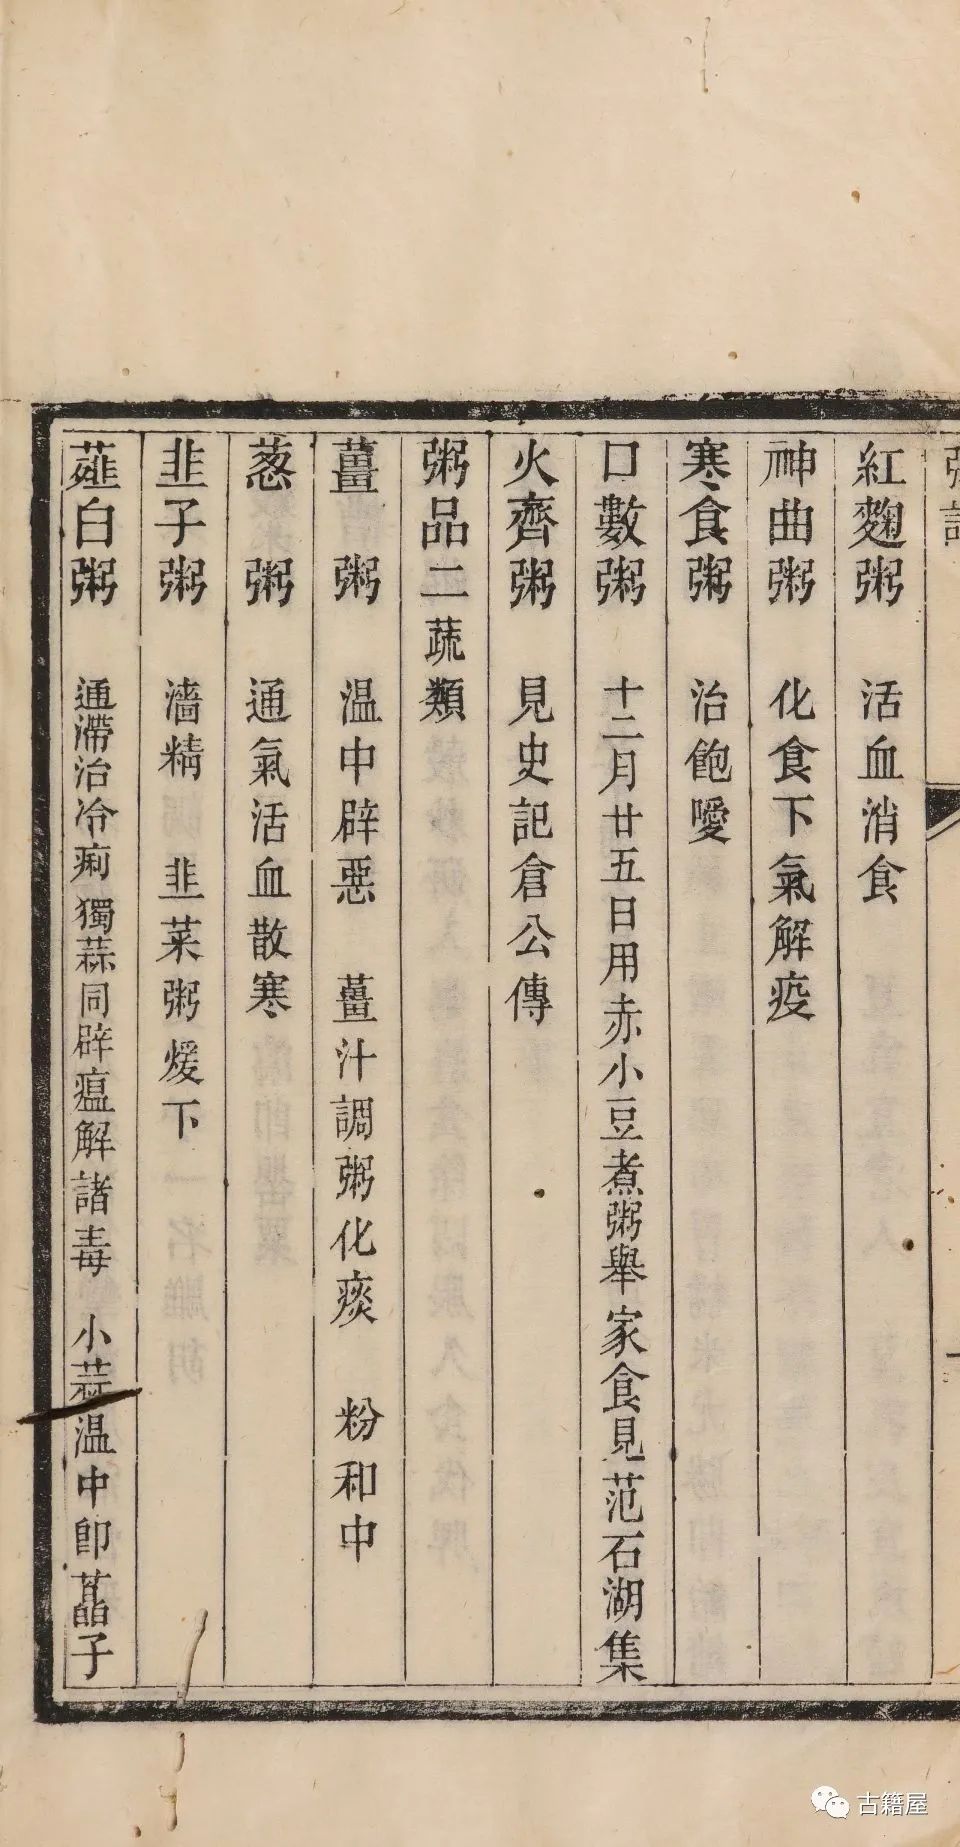 紅麴粥　活血消食
神曲粥　化食下氣解疫
寒食粥　治飽噯
口數粥　十二月廿五日用赤小豆煮粥舉家食見范石湖集
火齊粥　見史記倉公傳
粥品二蔬類
薑粥　温中辟惡　薑汁調粥化痰　粉和中
葱粥　通氣活血散寒
韭子粥　濇精　韭菜粥煖下
薤白粥　通滯治冷痢　獨蒜同辟瘟解諸毒　小蒜温中卽藠子
古籍屋